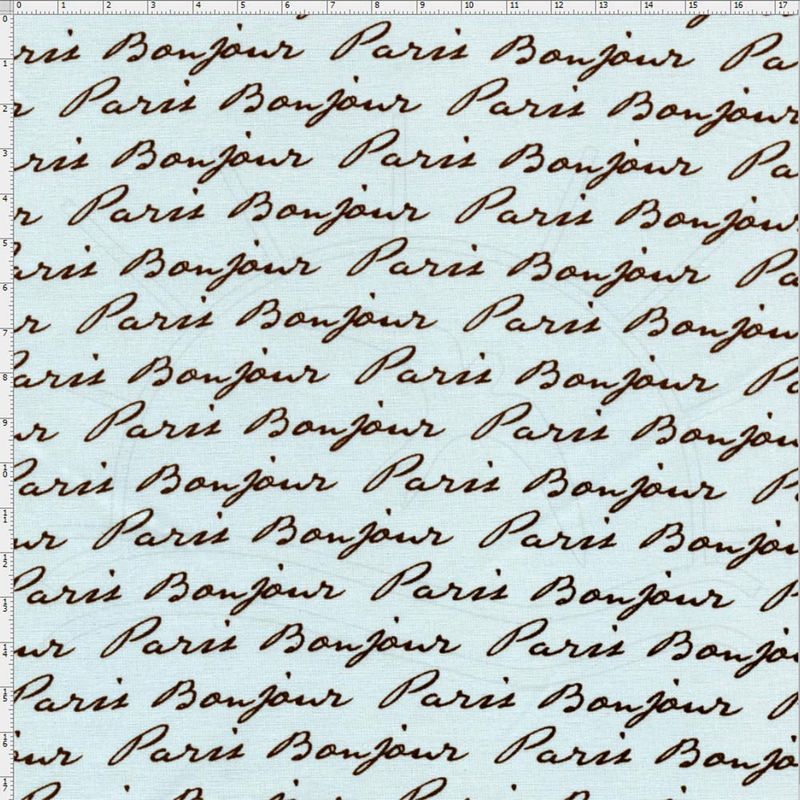 0 1 2 3 4 5 6 7 8 9 10 11 12 13 14 15 16 17
0
1
ris Bonjour Paris Bonjour Pa
2
r Paris Bonjour Paris Bonjour
3
ris Bonjour Paris Bonjour Pa
4
r Paris Bonjour Paris Bonjour
5
aris Bonjour Paris Bonjour Pa
6
7
r Paris Bonjour Paris Bonjou
8
aris Bonjour Paris Bonjour Pa
9
ur Paris Bonjour Paris Bonjou
10
Paris Bonjour Paris Bonjour P
11
ur Paris Bonjour Paris Bonjou
12
13
Paris Bonjour Paris Bonjour P
14
ur Paris Bonjour Paris Bonjo
15
Paris Bonjour Paris Bonjour P
16
our Paris Bonjour Paris Bonjo
17